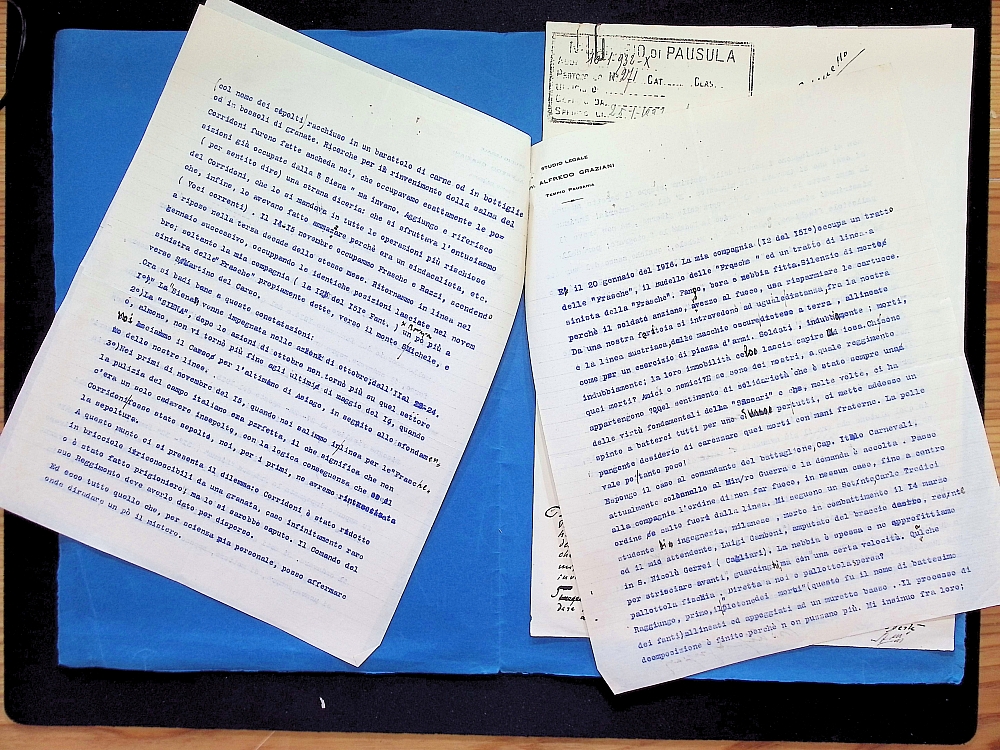 (col nome dei sepolti) racchiuso in un barattolo di carne od in bottiglie
od in bossoli di granate. Ricerche per il rinvenimento della salma del
Corridoni furono fatte ancheda noi, che occupavamo esattamente le po
sizioni già occupate dalla " Siena " ma invano. Aggiungo e riferisco
( per sentito dire) una strana diceria: che si sfruttava l'entusiasmo
del Corridoni, che lo si mandava in tutte le operazioni più rischiose
che, infine, lo avevano fatto ammazzare perchè era un sindacalista, etc.
( Voci correnti) . Il 14-15 novembre occupammo Frasche e Razzi, scendendo
a riposo nella terza decade dello stesso mese. Ritornammo in linea nel
Gennaio successivo, occupando le identiche posizioni lasciate nel novem
bre; soltanto la mia compagnia ( la 12 del 151° Fant. )
sinistra delle "Frasche" propriamente dette, verso il monte Michele, e
verso S.Martino del Carso.
un pò più a
Ora si badi bene a queste constatazioni:
1°) La "Siena" venne impegnata nelle azioni di ottobre, dall'11 al 24.
2°)La "SIENA", dopo le azioni di ottobre non tornò più su quel settore
o, almeno, non vi tornò più fino agli ultimi di maggio del 16, quando
noi lasciammo il Carso per l'altipiano di Asiago, in seguito allo sfondamento
delle nostre linee.
3°)Nei primi di novembre del 15, quando noi salimmo in linea per le "Frasche,
la pulizia del campo italiano era perfetta, il che significa che non
c'era un solo cadavere insepolto, con la logica conseguenza che se il
Corridoni fosse stato sepolto, noi, per i primi, ne avremmo rintracciata
la sepoltura.
A questo punto ci si presenta il dilemma: Corridoni è stato ridotto
in briciole irriconoscibili da una granata, caso infinitamente raro
o è stato fatto prigioniero; ma lo si sarebbe saputo. Il Comando del
suo Reggimento deve averlo dato per disperso.
Ed ecco tutto quello che, per scienza mia personale, posso affermare
onde diradare un pò il mistero.
DI PAUSULA
N° 271 CAT. CLAS.
STUDIO LEGALE
ALFREDO GRAZIANI
TEMPIO PAUSANIA
E' il 20 gennaio del 1916. La mia compagnia (12 del 151°)occupa un tratto
delle "Frasche", il budello delle "Frasche " ed un tratto di linea a
sinistra delle "Frasche". Fango, bora e nebbia fitta.Silenzio di morte
perchè il soldato anziano, avezzo al fuoco, usa risparmiare le cartucce.
Da una nostra feritoia si intravedono ad ugualedistanza,fra la nostra
e la linea austriaca,delle macchie oscuredistese a terra , allineate
come per un esercizio di piazza d'armi. Soldati , indubbiamente ; morti,
indubbiamente; la loro immobilità celso lascia capire ogni cosa.Chisono
quei morti? Amici o nemici?E se sono dei nostri, a quale reggimento
appartengono ?Quel sentimento di solidarietà che è stato sempre una
delle virtù fondamentali della "Sassari" e che, molte volte, ci ha
spinto a batterci tutti per uno per tutti, ci mette addosso un
pungente desiderio di carezzare quei morti con mani fraterne. La pelle
vale pò tanto poco!
Espongo il caso al comandante del battaglione,Cap. Italo Carnevali,
attualmente colbnallo al Min/ro Guerra e la domanda è accolta . Passo
alla compagnia l'ordine di non far fuoco, in nessun caso, fino a contro
ordine e salto fuori dalla linea. Mi seguono un SottntCarlo Tredici
studente ingegneria, milanese , morto in combattimento il 14 marzo
ed il mio attendente, Luigi Gamboni, amputato del braccio destro, residnte
in S. Nicolò Gerrei ( Cagliari). La nebbia è spessa e ne approfittiamo
per strisciare avanti, guardinghi ma con una certa velocità. Qualche
pallottola fischia . Diretta a noi o pallottola persa?
Raggiungo, primo, il "plotone dei morti" (questo fu il nome di battesimo
dei fanti)allineati ed appoggiati ad un muretto basso . Il processo di
decomposizione è finito perchè n on puzzano più. Mi insinuo fra loro;